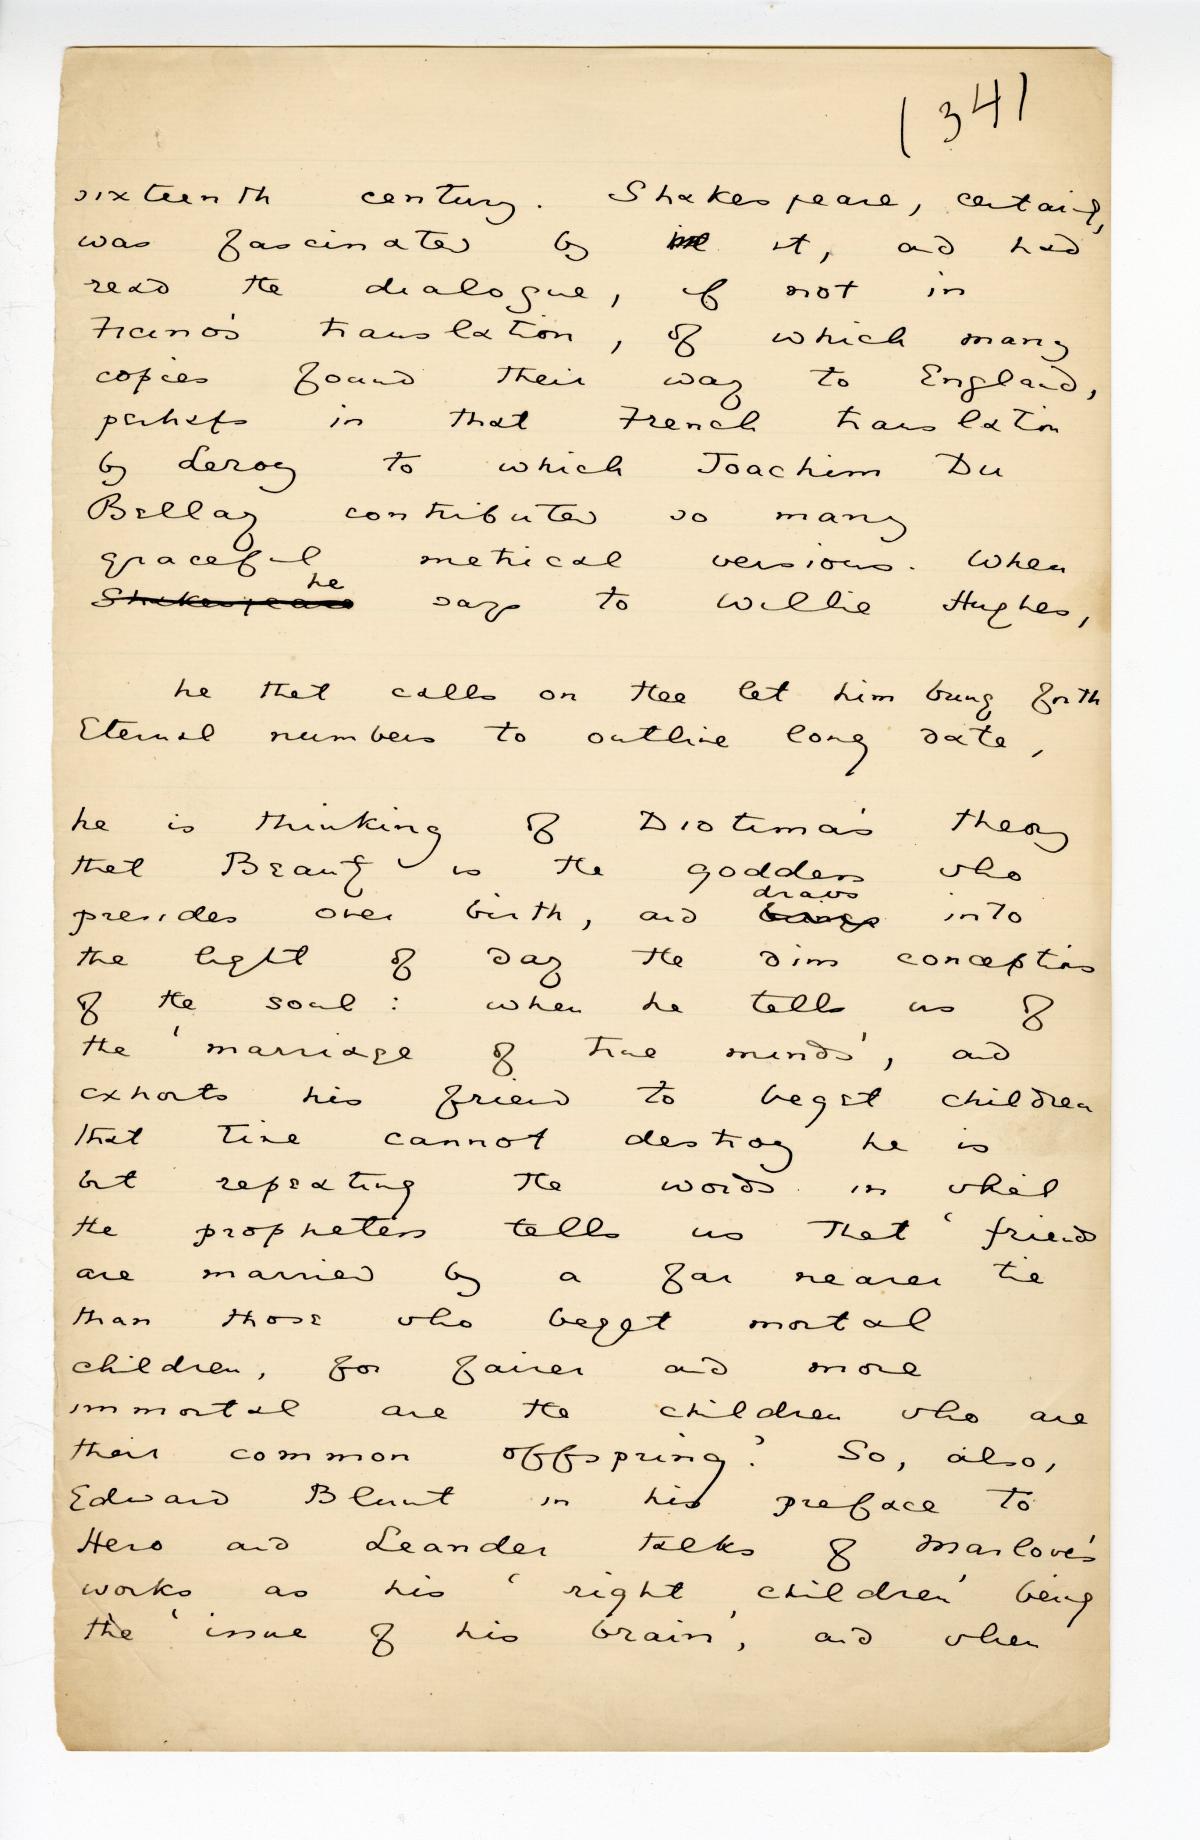 (34)
sixteenth century. Shakespeare, certainly,
was fascinated by it, and had
read the dialogue, if not in
Ficino's translation, of which many
copies found their way to England,
perhaps in that French translation
by Leroy to which Joachim Du
Bellay contributed so many
graceful metrical versions. When
he
Shakespeare says to Willie Hughes,
he that calls on thee let him bring forth
Eternal numbers to outlive long date,
he is thinking of Diotima's theory
that Beauty is the goddess who
draws
presides over birth, and brings into
the light of day the dim conceptions
of the soul: when he tells us of
the 'marriage of true minds', and
exhorts his friend to beget children
that time cannot destroy he is
but repeating the words in which
the prophetess tells us that 'friends
are married by a far nearer tie
than those who beget mortal
children, for fairer and more
immortal are the children who are
their common offspring.' So, also,
Edward Blunt in his preface to
Hero and Leander talks of Marlowe's
works as his 'right children' being
the 'issue of his brain', and when